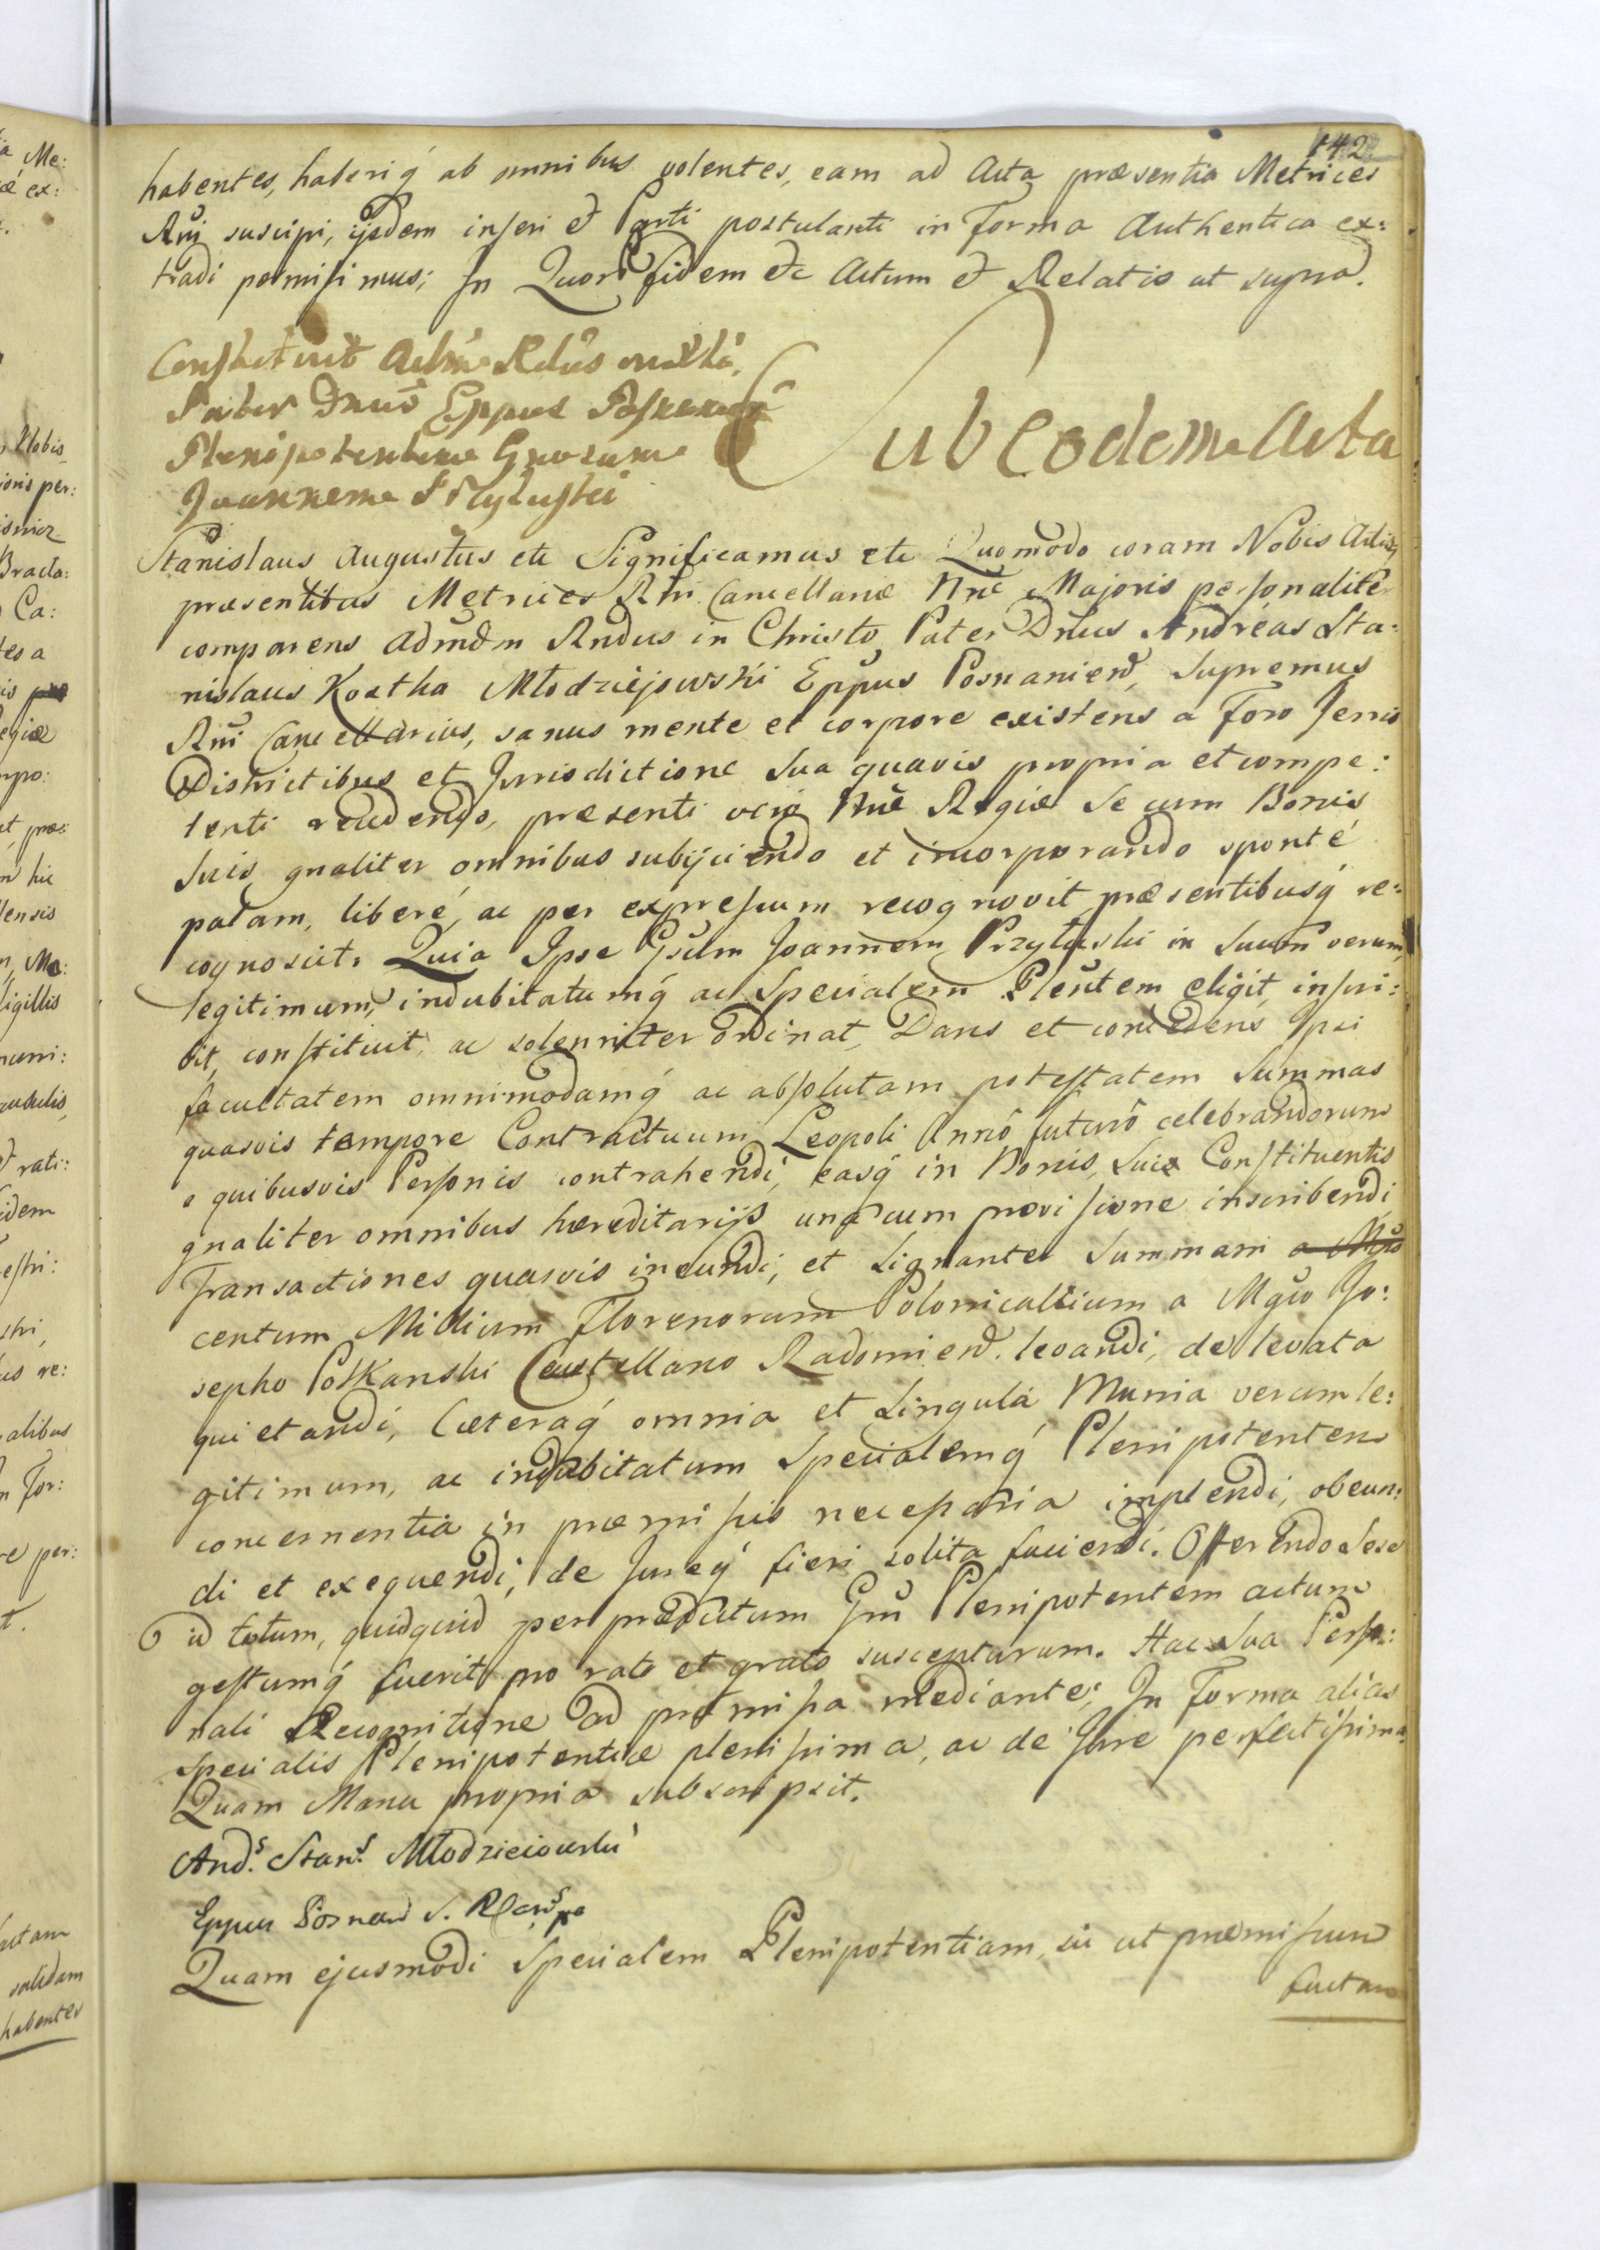 142
habentes, haberiq́ ab omnibus volentes, eam ad Acta præsentia Metrices
Rñi suscipi, ijsdem inseri et Parti postulanti in Forma Authentica ex:
tradi permisimus; In Quorũ fidem etc Actum et Relatio ut supra.
Constituit Adm̃ Rdũs
Pater Dnũs Eppus
Plenipotentem Gnosum
Joannem Przyłuski
Sub Eodem Acta
Stanislaus Augustus etc Significamus etc Quomodo coram Nobis Actisq́
præsentibus Metrices Rñi Cancellariæ Nr̃æ Majoris personaliter
comparens Admdm Rndus in Christo Pater Dñus Andreas Sta:
nislaus Kostka Młodziejowski Eppus Posnanien, Supremus
Rñi Cancellarius, sanus mente et corpore existens a Foro Terris
Districtibus et Jurisdictione Sua quavis propria et compe:
tenti recedendo, præsenti vero Nr̃æ Regiæ Se cum Bonis
Suis gnaliter omnibus subijciendo et incorporando sponté
palam, liberé, ac per expressum recognovit præsentibusq́ re:
cognoscit. Quia Ipse Gsum Joannem Przyłuski in Suum verum,
legitimum, indubitatumq́ ac Specialem Plentem eligit, inscri:
bit, constituit, ac solenniter ordinat, Dans et concedens Ipsi
facultatem omnimodamq́ ac absolutam potestatem Summas
quasvis tempore Contractuum Leopoli Annô futurô celebrandorum
a quibusvis Personis contrahendi, easq́ in Bonis Suis Constituentis
gnaliter omnibus hæreditarijs una cum provisione inscribendi
Transactiones quasvis ineundi, et Signanter Summam a Mgco
centum Millium Florenorum Polonicalium a Mgco Jo:
sepho Potkanski Castellano Radomien. levandi, de levata
quietandi, Cæteraq́ omnia et Singula Munia verum le:
gitimum, ac indubitatum Specialemq́ Plenipotentem
concernentia in præmissis necessaria implendi, obeun:
di et exequendi, de Jureq́ fieri solita faciendi. Offerendo Sese
id totum, quidquid per prædictum Gsũ Plenipotentem actum
gestumq́ fuerit pro rato et grato suscepturum. Hac Sua Perso:
nali Recognitione ad præmissa mediante; In Forma alias
specialis Plenipotentiæ plenissima, ac de Jure perfectissima.
Quam Manu propria subscripsit.
Andˢ. Stanˢ. Młodzieiowski
Eppus Posnan
Quam ejusmodi Specialem Plenipotentiam, sic ut præmissum
factam